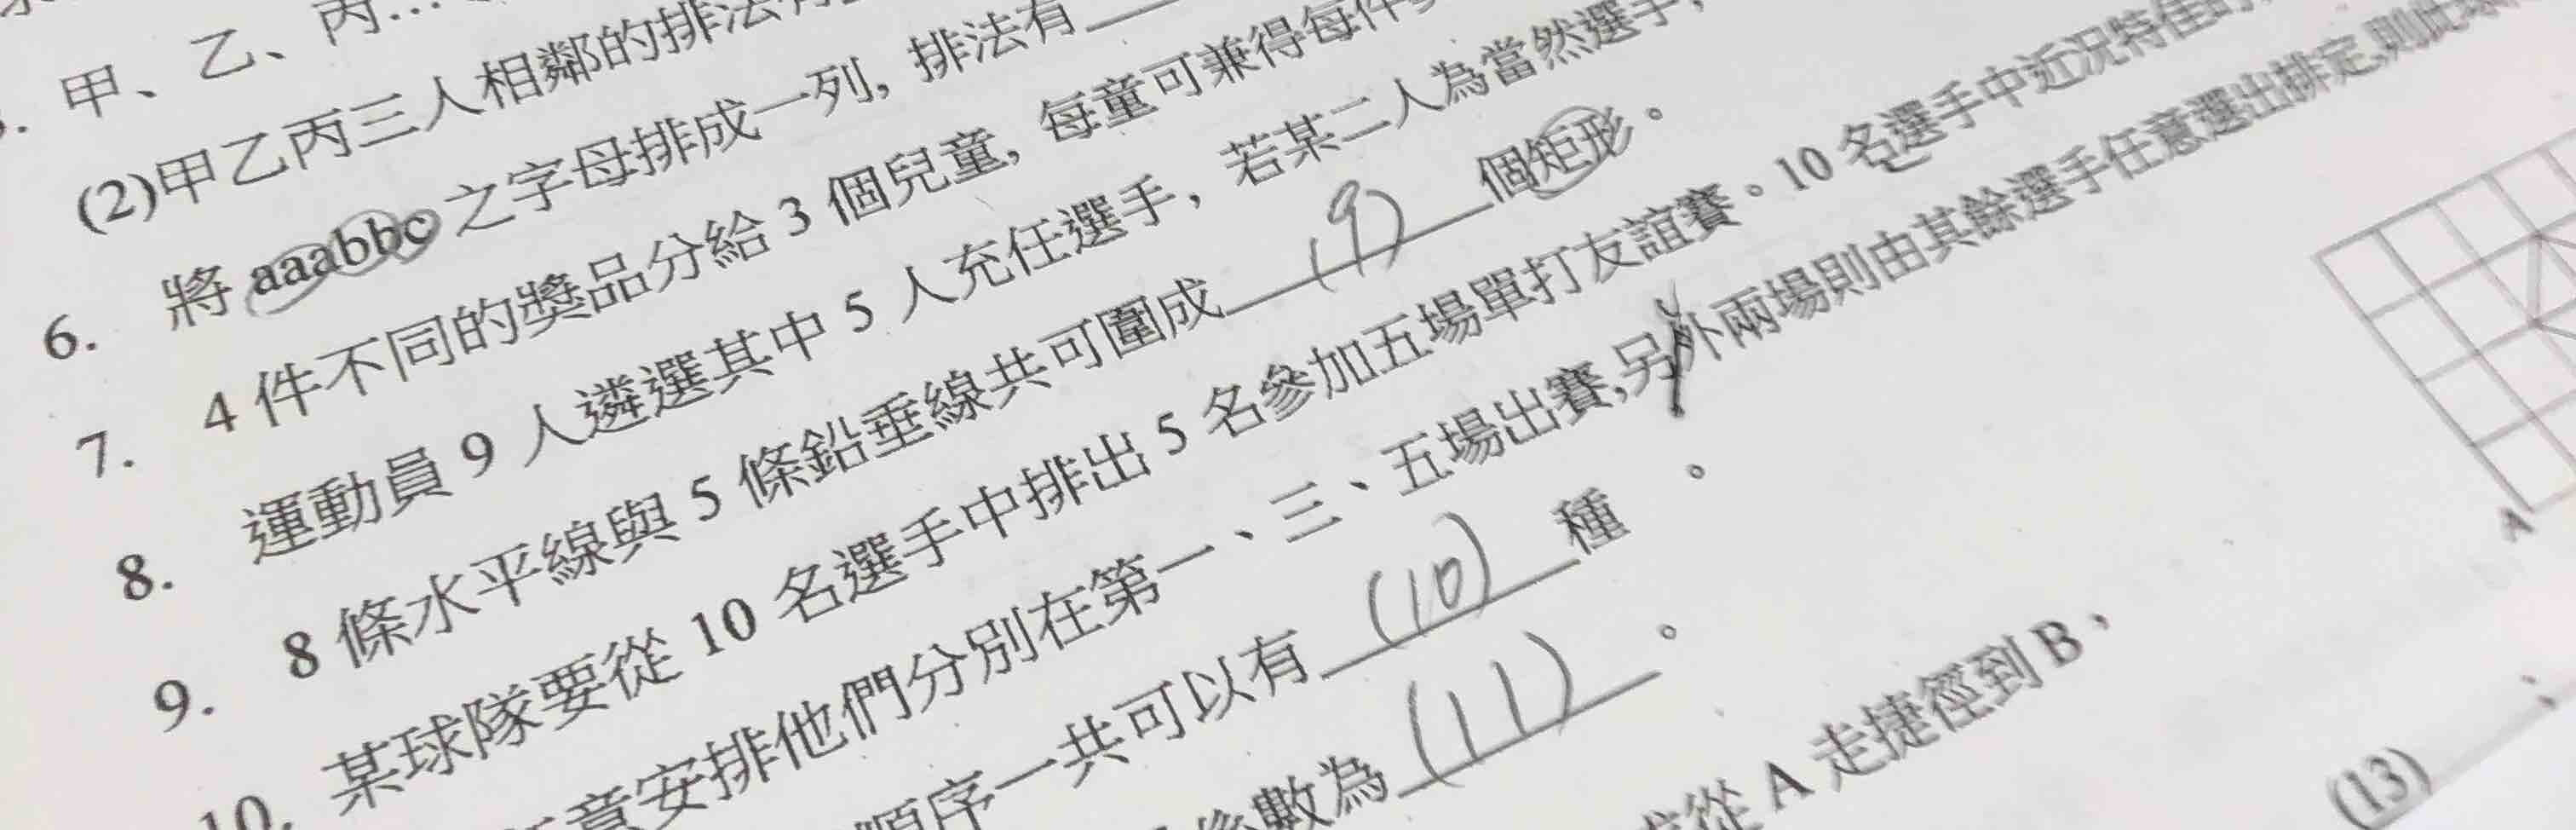 甲、乙、丙…
(2)甲乙丙三人相鄰的排法
6. 將 aaabbc 之字母排成一列, 排法有
7. 4 件不同的獎品分給 3 個兒童, 每童可兼得每件
8. 運動員 9 人遴選其中 5 人充任選手, 若某二人為當然選手,
9. 8 條水平線與 5 條鉛垂線共可圍成 (9) 個矩形。
10. 某球隊要從 10 名選手中排出 5 名參加五場單打友誼賽。10 名選手中近況特佳的
意安排他們分別在第一、三、五場出賽,另外兩場則由其餘選手任意選出排定,則此球
順序一共可以有 (10) 種。
係數為 (11) 。
從 A 走捷徑到 B、
A
(13)